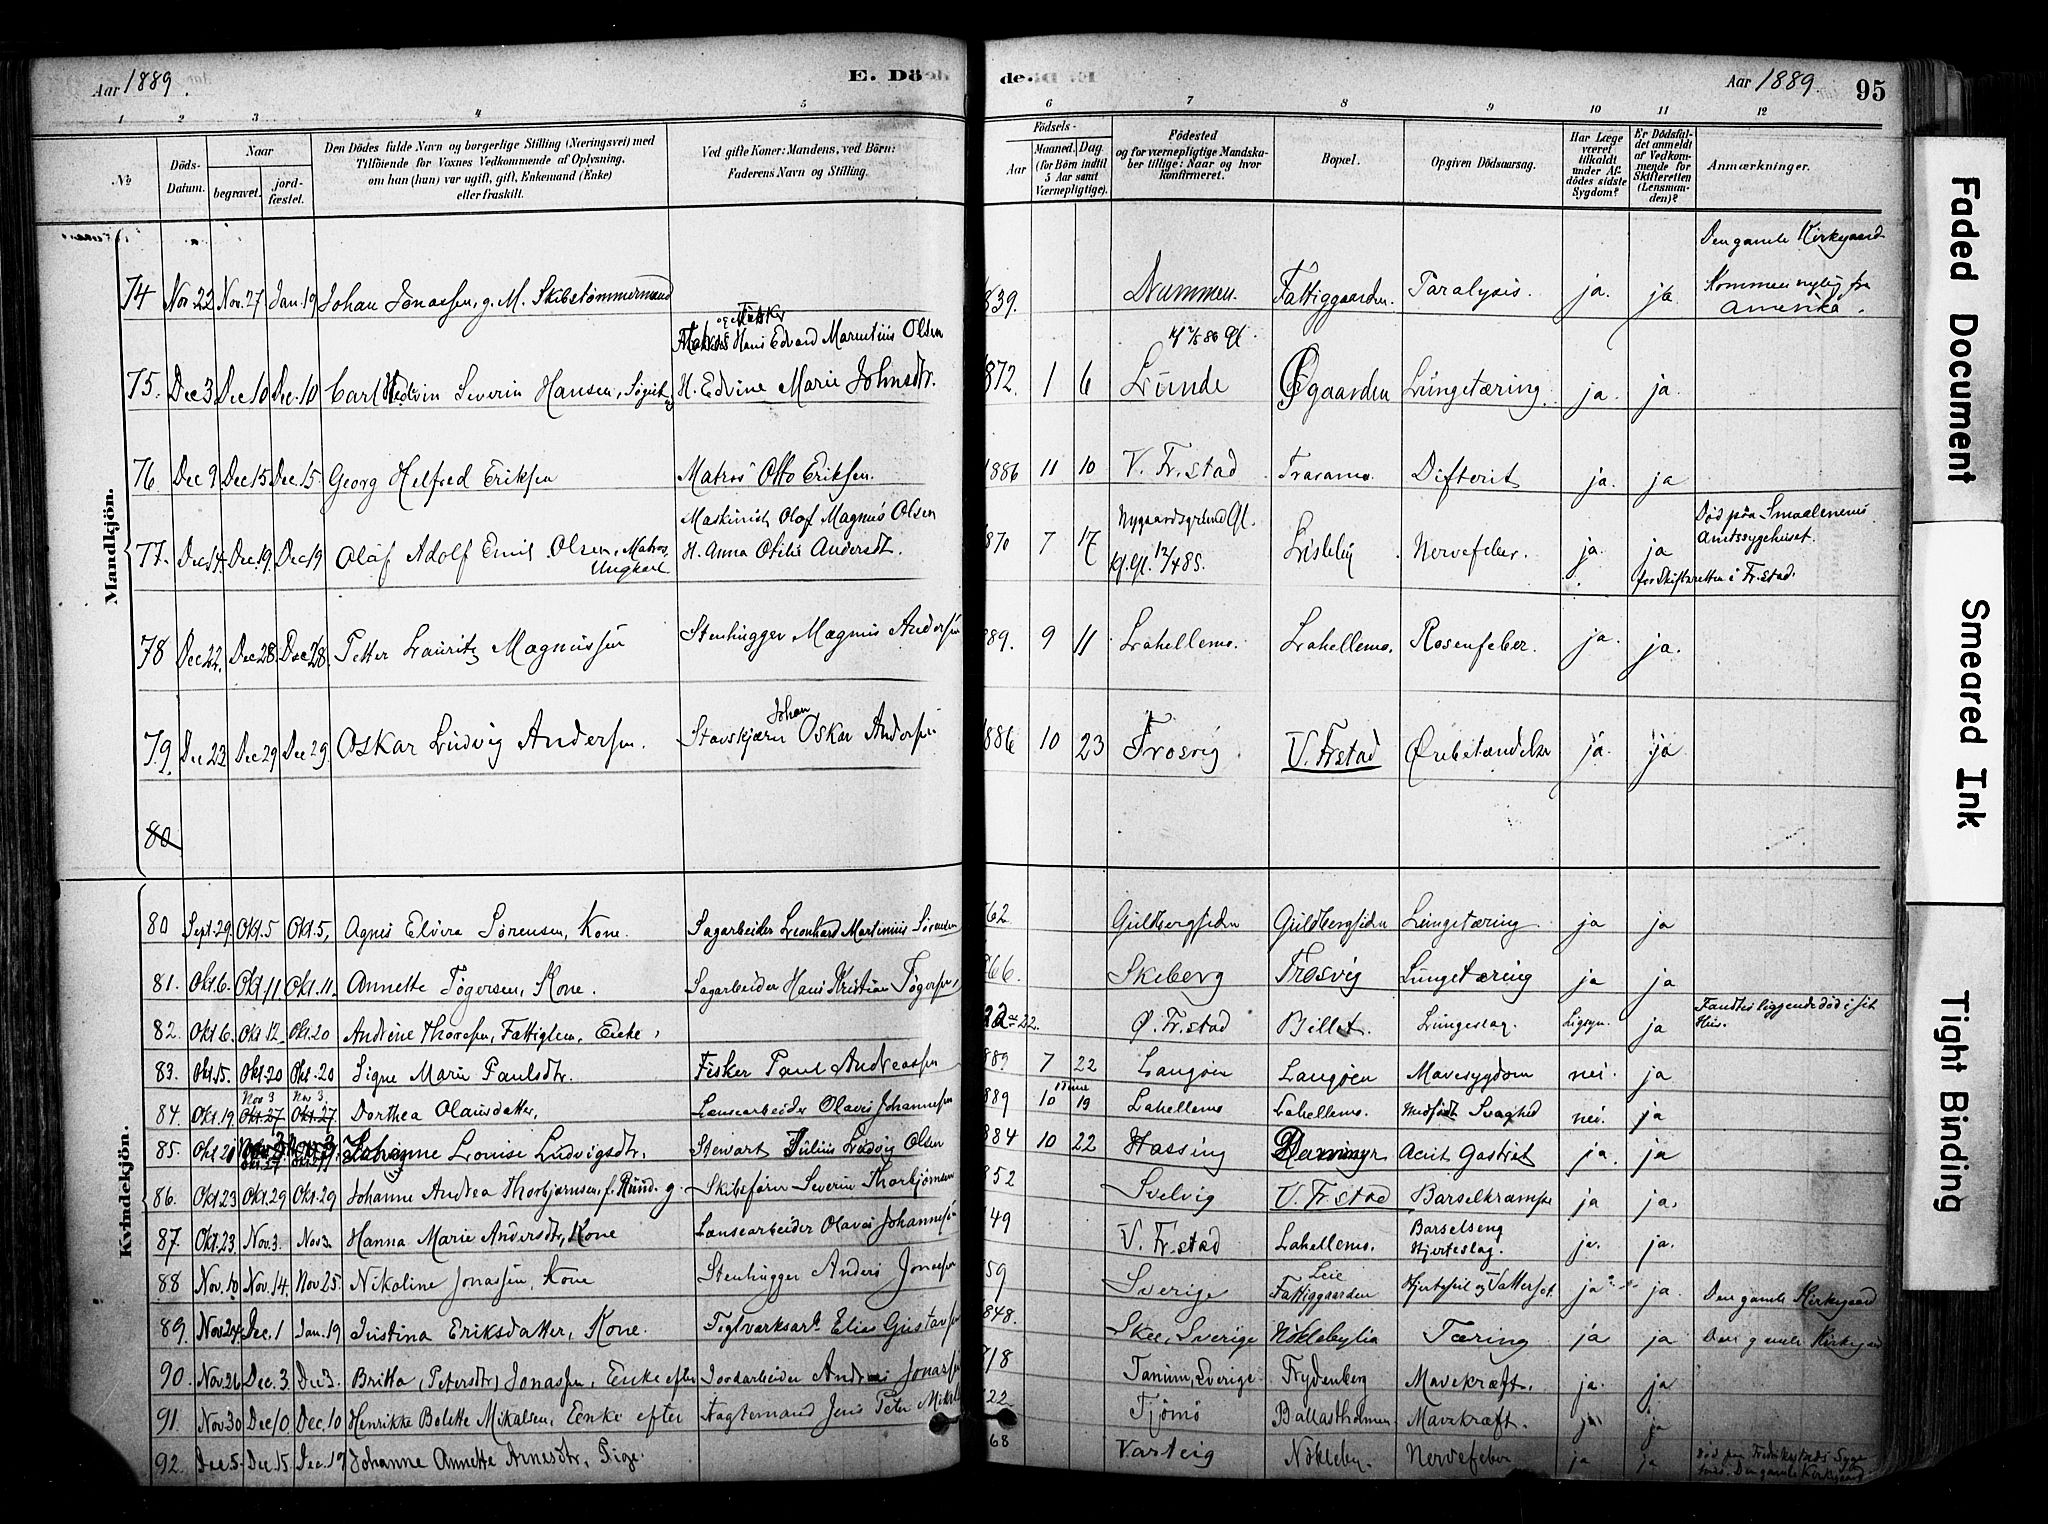 Aar 1889.
E. Dö
de.
Aar 1889.
95
1 2 3 4 5 6 7 8 9 10 11 12
No
Döds-
Datum.
Naar
begravet.
jord-
fæstet.
Den Dödes fulde Navn og borgerlige Stilling (Næringsvei) med
Tilföiende for Voxnes Vedkommende af Oplysning,
om han (hun) var ugift, gift, Enkemand (Enke)
eller fraskilt.
Ved gifte Koner: Mandens, ved Börn:
Faderens Navn og Stilling.
Födsels-
Aar
Maaned. Dag.
(for Börn indtil
5 Aar samt
Værnepligtige).
Födested
og for værnepligtige Mandska-
ber tillige: Naar og hvor
konfirmeret.
Bopæl.
Opgiven Dödsaarsag.
Har Læge
været
tilkaldt
under Af-
dödes sidste
Sygdom?
Er Dödsfal-
det anmeldt
af Vedkom-
mende for
Skifteretten
(Lensman-
den)?
Anmærkninger.
Mandkjön.
Den gamle Kirkegaard
74 Nov 22 Nov. 27 Jan. 19 Johan Jonassen, g. M. Skibstömmermand 839. Drammen. Fattiggaarden. Paralysis. ja. ja Kommen nylig fra
Amerika.
Matros Hans Edvard Marentius Olsen
75. Dec 3 Dec 10 Dec. 10 Carl Hedvin Severin Hansen, H. Edvine Marie Johnsdtr. 872. 1 6 Lunde Øgaarden Lungetæring. ja. ja.
76 Dec 9 Dec 15 Dec. 15. Georg Helfred Eriksen Matros Otto Eriksen. 1886 11 10 V. Fr.stad Traramo. Difterit ja. ja
Maskinist Olaf Magnus Olsen Nygaardsgrund Gl. Död paa Smaalenenes
Amtssygehuset.
77. Dec 14. Dec. 19. Dec 19 Olaf Adolf Emil Olsen, Matros, H. Anna Otilie Andersdt. 870 7 17 kf. Gl. 12/4 85. Lisleby Nervefeber. ja. ja
Ungkarl for Skifteretten i Fr.stad.
78 Dec 22. Dec 28. Dec 28. Petter Lauritz Magnussen Stenhugger Magnus Andersen 889. 9 11 Lahellemo. Lahellemo. Rosenfeber. ja. ja.
79. Dec 23 Dec 29 Dec 29 Oskar Ludvig Andersen. Stavskjærer Johan Oskar Andersen 886 10 23 Trosvig V. Frstad Ørebetændelse ja. ja
80
Kvindekjön.
80 Sept. 29. Okt. 5 Okt. 5, Agnes Elvira Sörensen, Kone. Sagarbeider Leonhard Martinius Sörensen 62 Guldbergsiden Guldbergsiden Lungetæring ja ja
81. Okt. 6. Okt 11 Okt. 11. Annette Tögersen, Kone. Sagarbeider Hans Kristian Tögersen, 66. Skeberg Trosvig Lungetæring ja ja
82. Okt 6 Okt 12 Okt. 20 Andrine Thoresen, Fattiglem, Enke, 22. Ø. Fr.stad Billet. Lungeslag. Ligsyn. ja Fandtes liggende död i sit
Hus.
83. Okt. 15. Okt. 20 Okt. 20 Signe Marie Paulsdtr. Fisker Paul Andreassen 889 7 22 Langöen Langöen Mavesygdom nei. ja
Nov 3 Nov 3.
84. Okt. 19 Okt. 27 Okt. 27 Dorthea Olausdatter, Lænsearbeider Olavus Johannesen 889 10 19 Lahellemo Lahellemo. medfödt Svaghed nei. ja
85. Okt 20 Johanne Louise Ludvigsdtr, Stewart Julius Ludvig Olsen 884 10 22 Hassing Acut Gastrit ja. ja
86. Okt. 23 Okt. 29 Okt. 29 Johanne Andrea Thorbjørnsen, f. Rund. g. Skibsförer Severin Thorbjörnsen 852 Svelvig V. Fr.stad Barselkrampe ja ja.
87. Okt. 23. Nov. 3. Nov 3. Hanna Marie Andersdtr, Kone Lænsearbeider Olavus Johannesen 49 V. Fr.stad Lahellemo. Barselseng
Hjerteslag. ja. ja.
88 Nov. 10 Nov. 14. Nov 25. Nikoline Jonassen, Kone Stenhugger Anders Jonassen 59 Sverige Leie
Fattiggaarden Hjertefeil og Vattersot. ja ja. Den gamle Kirkegaard
89. Nov 24. Dec. 1 Jan. 19 Justina Eriksdatter, Kone. Teglværksarb. Elias Gustavsen 848. Skee, Sverige Nöklebylia Tæring ja ja Den gamle Kirkegaard
90. Nov 26 Dec. 3 Dec 3. Britta (Petersdtr) Jonassen, Enke efter Jordarbeider Andreas Jonassen 818 Tanum, Sverige Frydenberg Mavekræft. ja. ja
91. Nov 30 Dec 10 Dec. 10 Henrikke Bolette Mikalsen, Enke efter Fagtemand Jens Peter Mikal 22 Tjömö Ballastholmen Mavekræft. ja ja
92. Dec 5. Dec 15. Dec. 17 Johanne Annette Arnesdtr, Pige. 68 Varteig Nökleby. Nervefeber ja ja Död paa Fredrikstads Syge
Den gamle Kirkegaard
Faded Document
Smeared Ink
Tight Binding